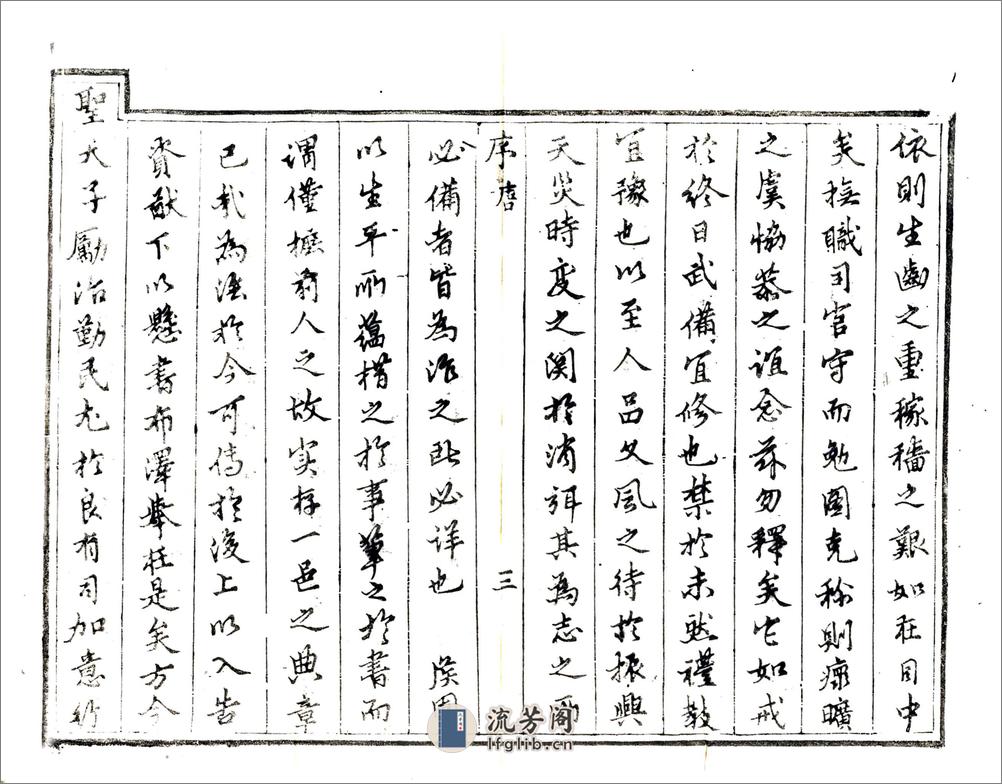 依則生齒之重稼穡之艱如在目中
矣撫職司官守而勉圖克稱則瘝曠
之虞協恭之誼念茲勿釋矣它如戒
於終日武備宜修也禁於未然禮教
宜豫也以至人品文風之待於振興
天災時变之関於消弭其為志之所
序 唐 三
必備者皆為治之所必詳也 侯因
以生平所蘊措之於事筆之於書而
謂僅摭前人之故实存一邑之典章
已哉為法於今可傳於後上以入告
資猷下以懸書布澤擧在是矣方今
聖天子勵治勤民尤於良有司加意
流芳阁
lfglib.cn